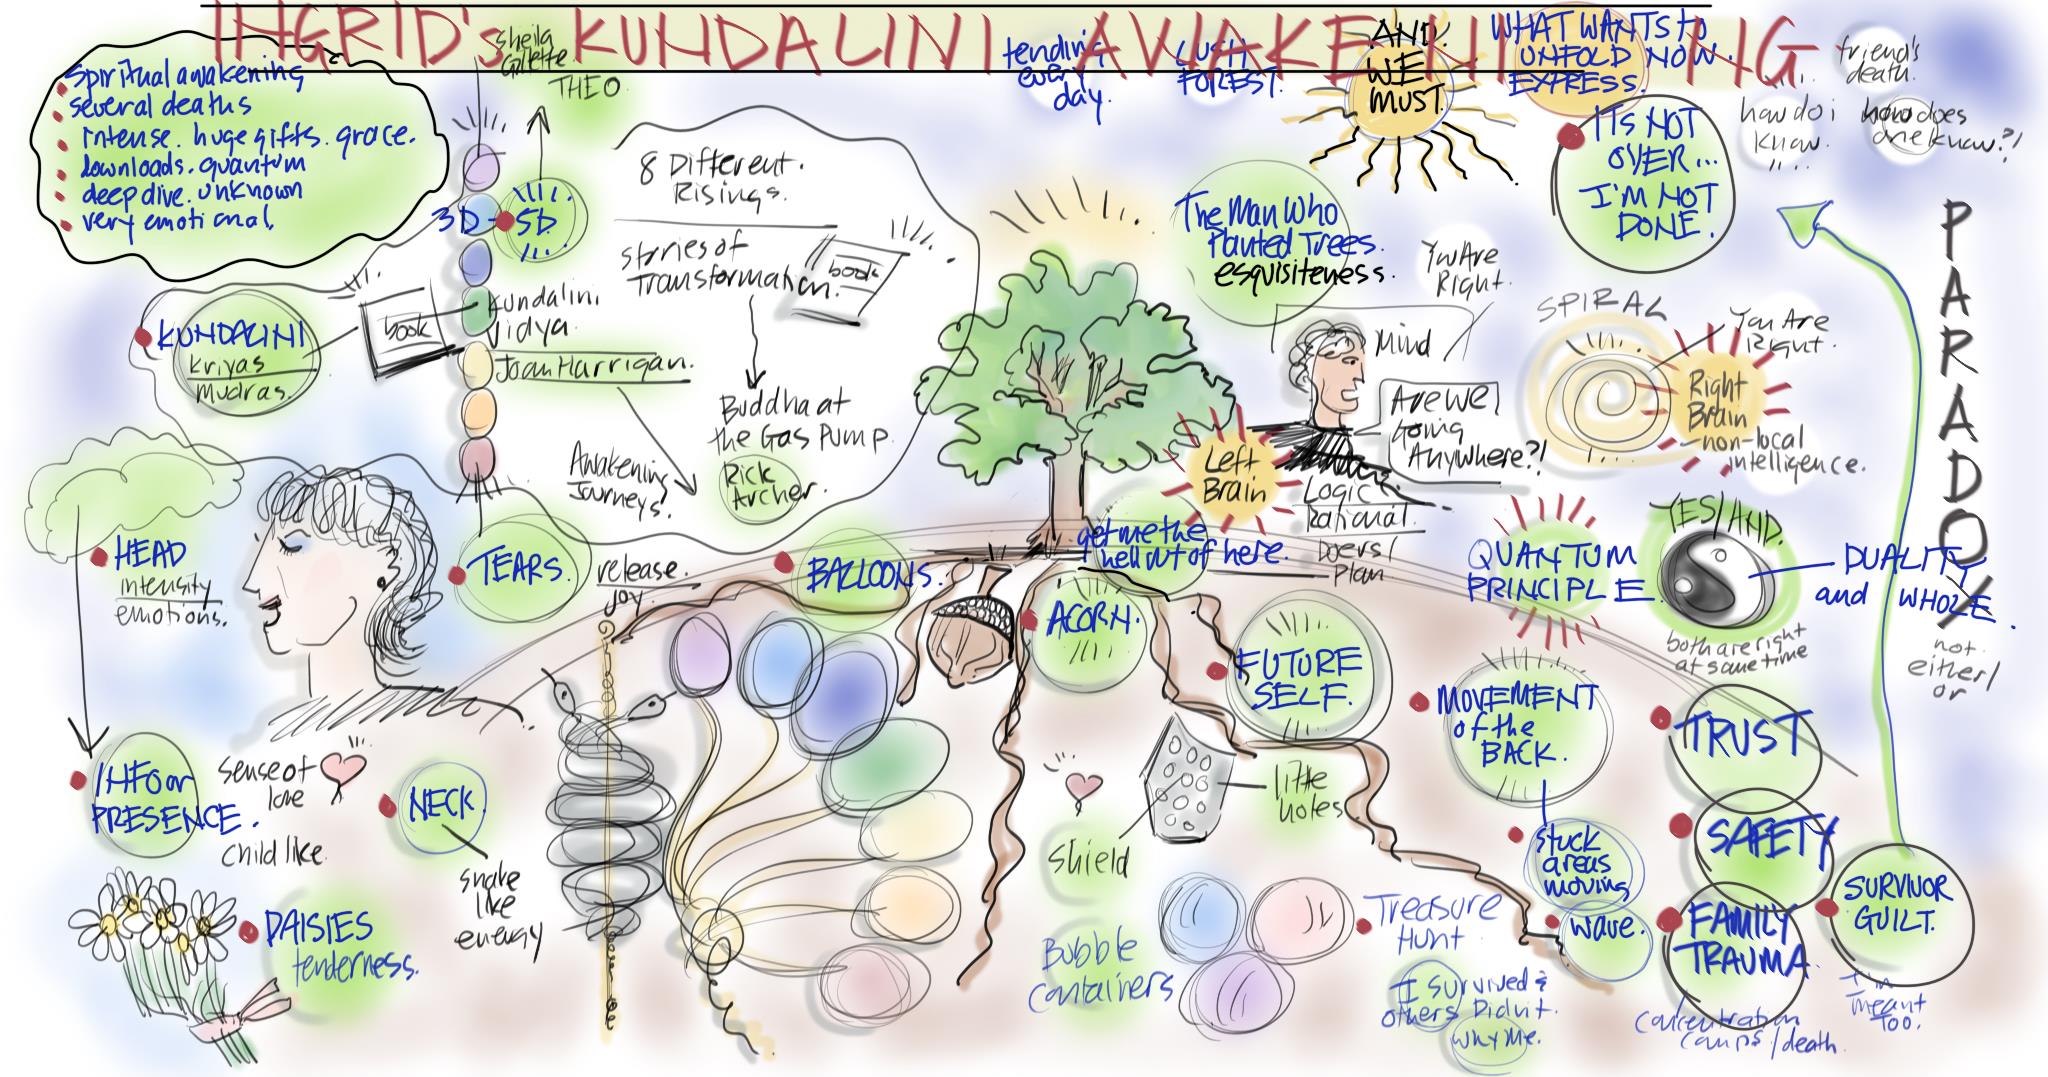 INGRID's KUNDALINI AWAKENING
Spiritual awakening
several deaths
intense. huge gifts. grace.
downloads. quantum
deep dive. unknown
very emotional.
Sheila
Gillette
THEO
3D
5D
KUNDALINI
kriyas
mudras.
book
Kundalini
Vidya.
Joan Harrigan.
8 Different.
Risings.
stories of
Transformation.
book
Buddha at
the Gas Pump
Rick
Archer.
Awakening
Journeys!
tending
every
day.
LUSH
FOREST.
AND.
WE
MUST.
WHAT WANTS TO
UNFOLD NOW.
EXPRESS.
friend's
death.
how do i
know.
how does
one know?!
ITS NOT
OVER...
I'M NOT
DONE.
The Man Who
Planted Trees.
esquisiteness.
You Are
Right.
Mind
Are we
Going
Anywhere?!
Left
Brain
Logic
Rational.
Doers/
Plan
SPIRAL
You Are
Right.
Right
Brain
non-local
intelligence.
PARADOX
not
either/
or
HEAD
intensity
emotions.
TEARS.
release.
joy.
BALLOONS.
get me the
hell out of here.
ACORN.
FUTURE
SELF.
QUANTUM
PRINCIPLE
YES/AND.
DUALITY
and WHOLE.
both are right
at same time
INFO or
PRESENCE.
sense of
love
child like.
NECK.
snake
like
energy
DAISIES
tenderness.
shield
little
holes.
Bubble
Containers
MOVEMENT
of the
BACK.
stuck
areas
moving
wave.
TRUST
SAFETY
FAMILY
TRAUMA.
concentration
camps/death.
SURVIVOR
GUILT.
I'm
meant
too.
Treasure
Hunt
I survived &
others Didn't.
why me.